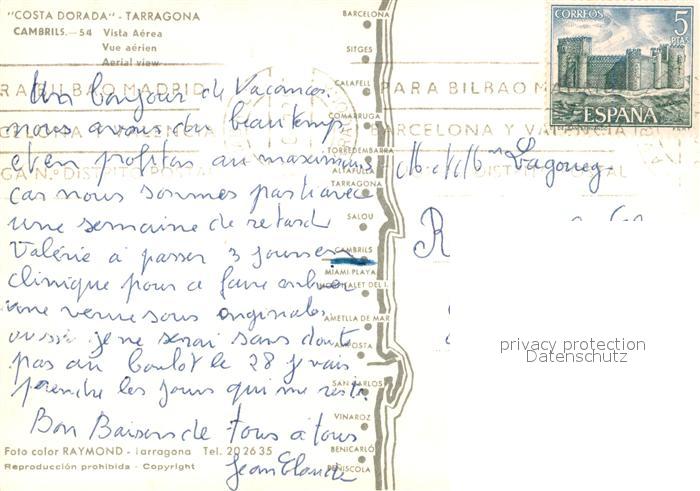 "COSTA DORADA" - TARRAGONA
CAMBRILS.—54 Vista Aérea
Vue aérien
Aerial view
Un bonjour de Vacances.
nous avons du beau temp
et en profitons au maximum
car nous sommes parti avec
une semaine de retard
Valérie à passer 3 jours en
clinique pour ce faire enlever
une verrue sous
aussi je ne serai sans doute
pas au boulot le 28 je vais
prendre les jours qui me reste.
Bon Baisers de tous à tous
Jean Claude
Foto color RAYMOND - Tarragona Tel. 20 26 35
Reproducción prohibida - Copyright
BARCELONA
SITGES
CALAFELL
COMARRUGA
TORREDEMBARRA
ALTAFULLA
TARRAGONA
SALOU
CAMBRILS
MIAMI PLAYA
HOSPITALET DEL I.
AMETLLA DE MAR
AMPOSTA
SAN CARLOS
VINAROZ
BENICARLÓ
PEÑISCOLA
CORREOS
5
PTAS
ESPAÑA
RA BILBAO MADRID
PARA BILBAO MA
BARCELONA Y VALENCIA
GA N.º DISTRITO POSTAL
DISTRITO POSTAL
M. et Mme
R
privacy protection
Datenschutz